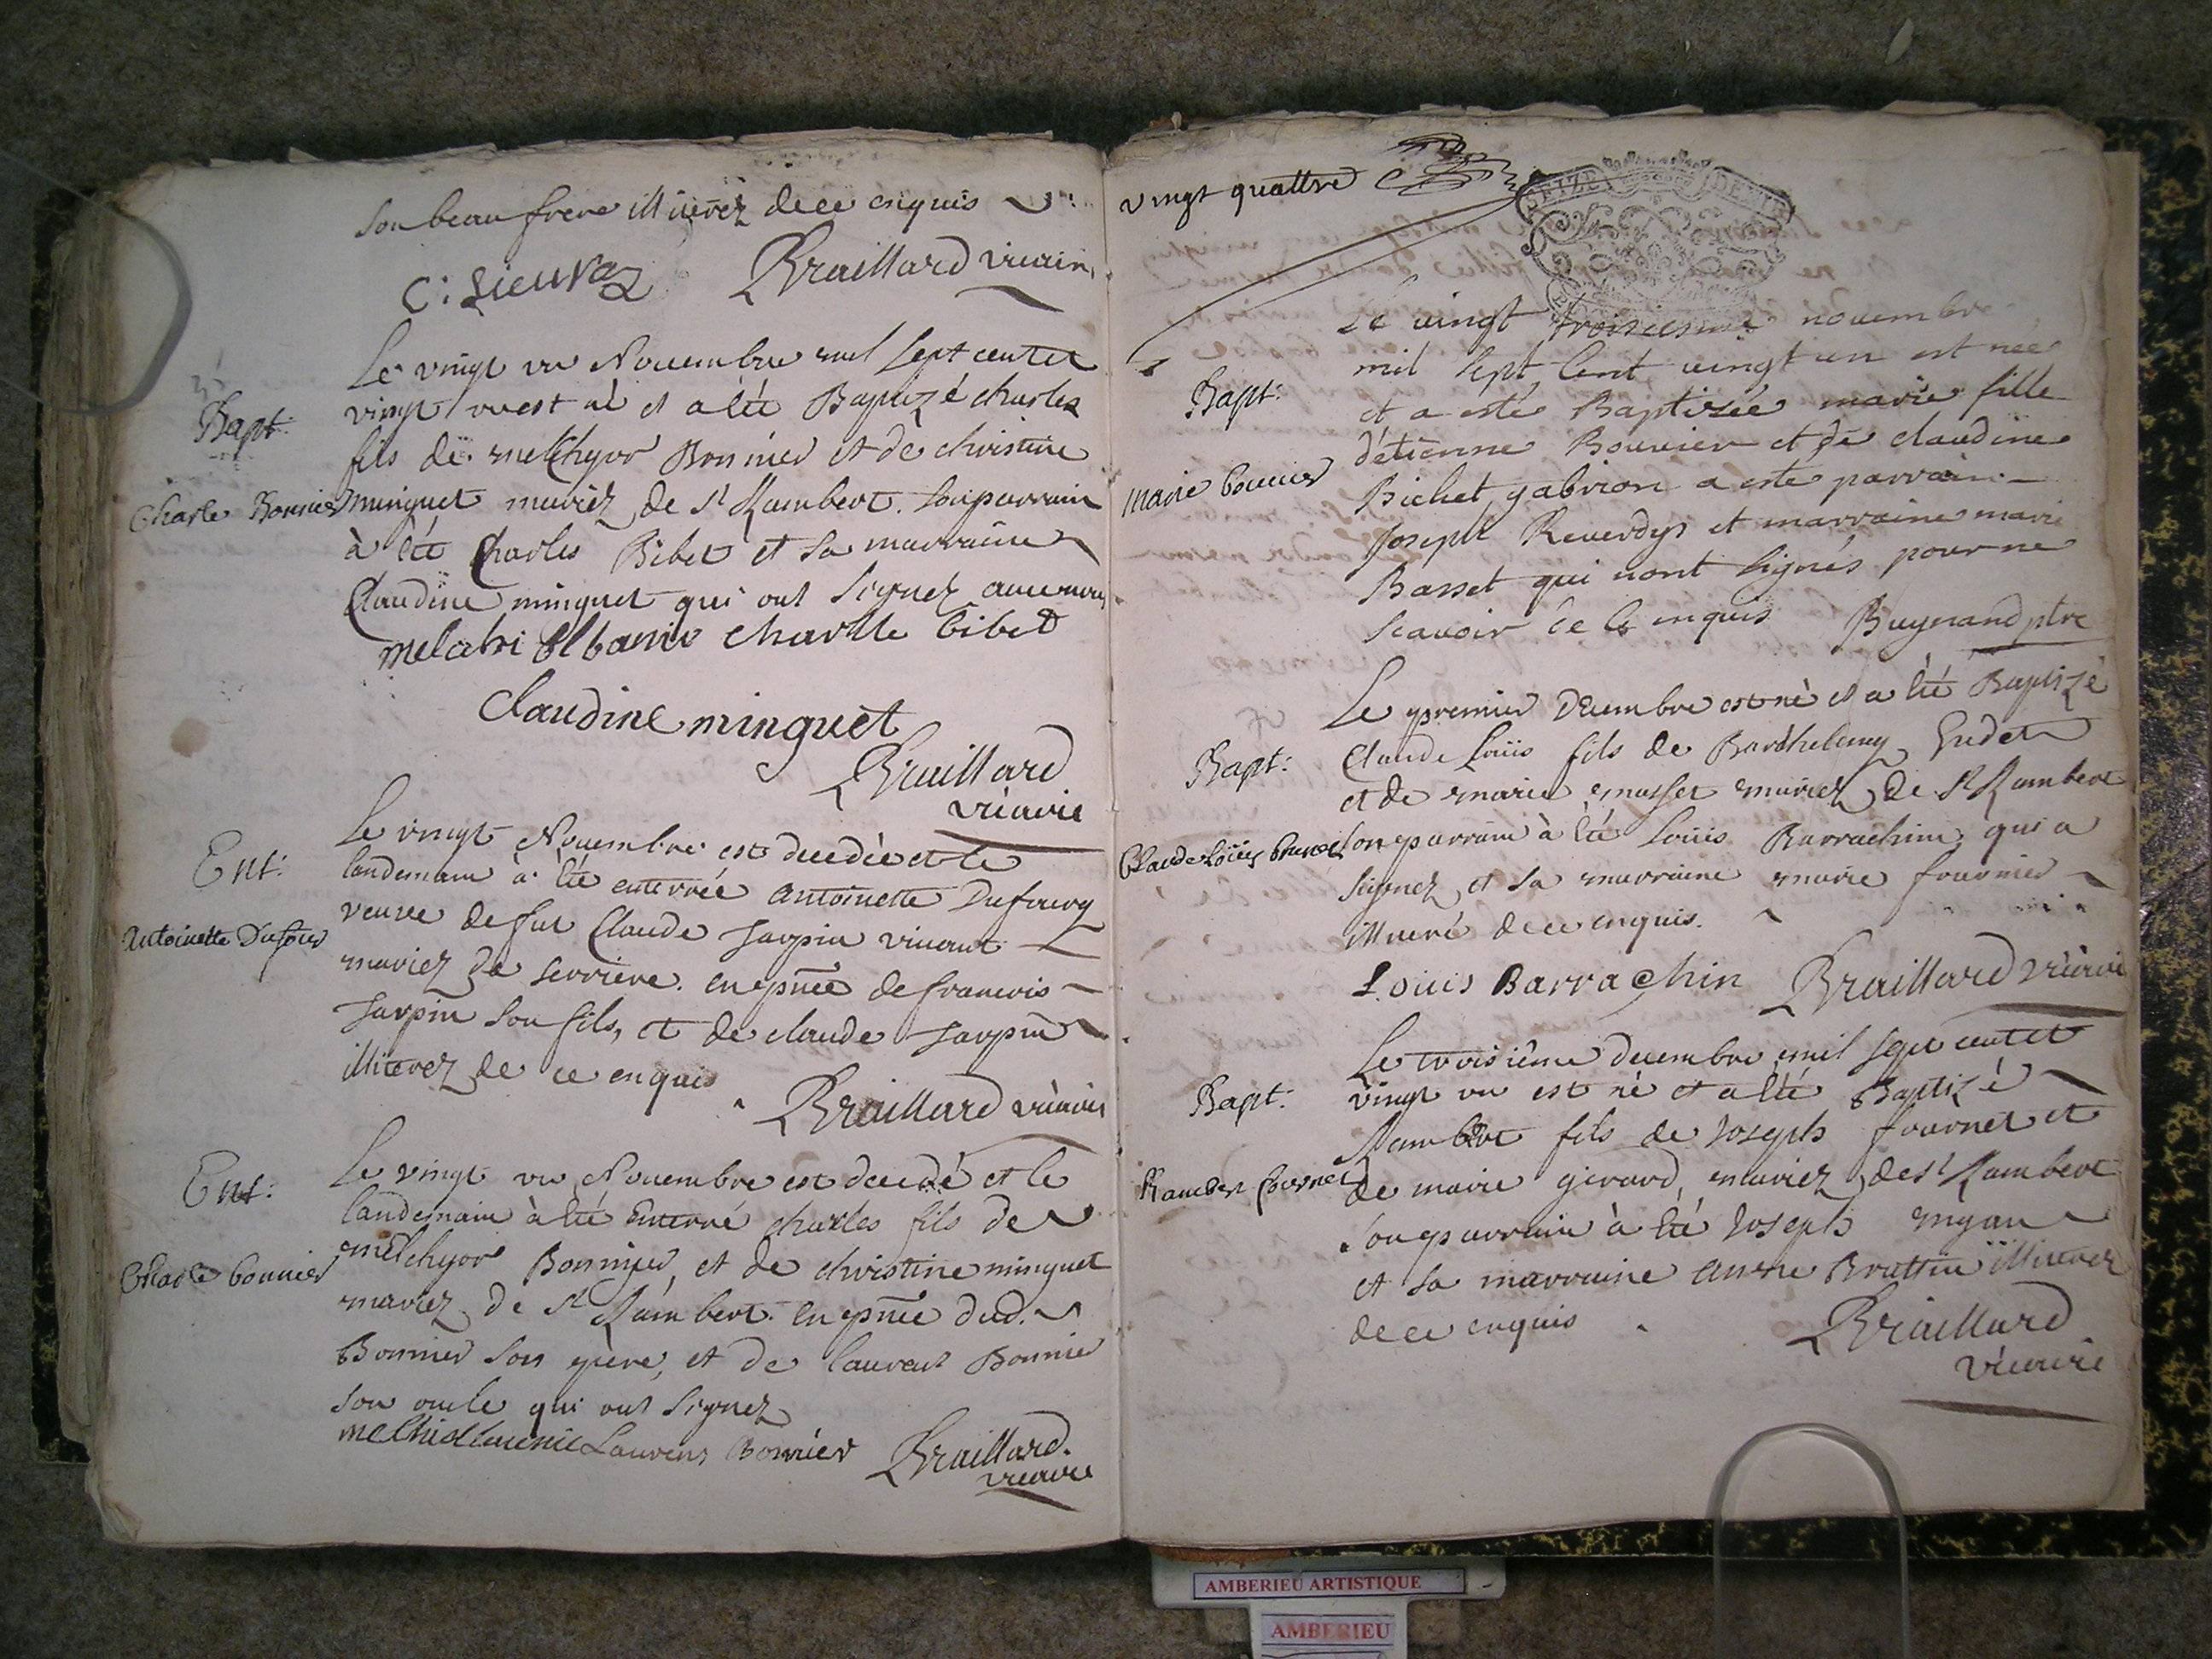 son beau frere illiterez de ce enquis
C: Sieuvaz Braillard vicaire
Le vingt un Novembre mil sept cent et
Bapt:
vingt un est né et a été Baptizé charles
fils de melchyor Bonnier et de christine
Charle Bonnier
minguet mariez de St Rambert. son parrain
à été Charles Bibet et sa marraine
Claudine minguet qui ont signez avec nous
charlle bibet
claudine minguet
Braillard
vicaire
Ent:
Le vingt Novembre est decedée et le
landemain à été enterrée antoinette Dufour
Antoinette Dufour
veuve de fut Claude Jarpin vivant
mariez de serriere. en pnce de francois
Jarpin son fils, et de claude Jarpin
illiterez de ce enquis
Braillard vicaire
Ent:
Le vingt un Novembre est decedé et le
landemain à été Enterré charles fils de
Charle bonnier
melchyor Bonnier, et de christine minguet
mariez de St Rambert. en pnce dud.
Bonnier son pere, et de laurent Bonnier
son oncle qui ont signez
Laurens Bonnier Braillard
vicaire
vingt quattre
SEIZE DENIERS
Le vingt troisiesme novembre
mil sept cent vingt un est née
Bapt:
et a esté Baptisée marie fille
d'etienne Bouvier et de claudine
marie bouvier
Bichet gabrion a esté parrain
Joseph Reverdys et marraine marie
Basset qui nont signés pour ne
scavoir de ce enquis Buynand ptre
Le premier Decembre est né et a été Baptizé
Bapt:
Claude Louis fils de Barthelemy
et de marie masset mariez de St Rambert
Claude Loüis
son parrain à été Louis Barrachin qui a
signez et sa marraine marie fournier
illiteré de ce enquis.
Louis Barrachin Braillard vicaire
Le troisième decembre mil sept cent et
Bapt:
vingt un est né et a été Baptizé
Rambert fils de Joseph fournet et
Rambert fournet
de marie girard, mariez de St Rambert
son parrain à été Joseph
et sa marraine anne Brattin illiterez
de ce enquis
Braillard
vicaire
AMBERIEU ARTISTIQUE
AMBERIEU